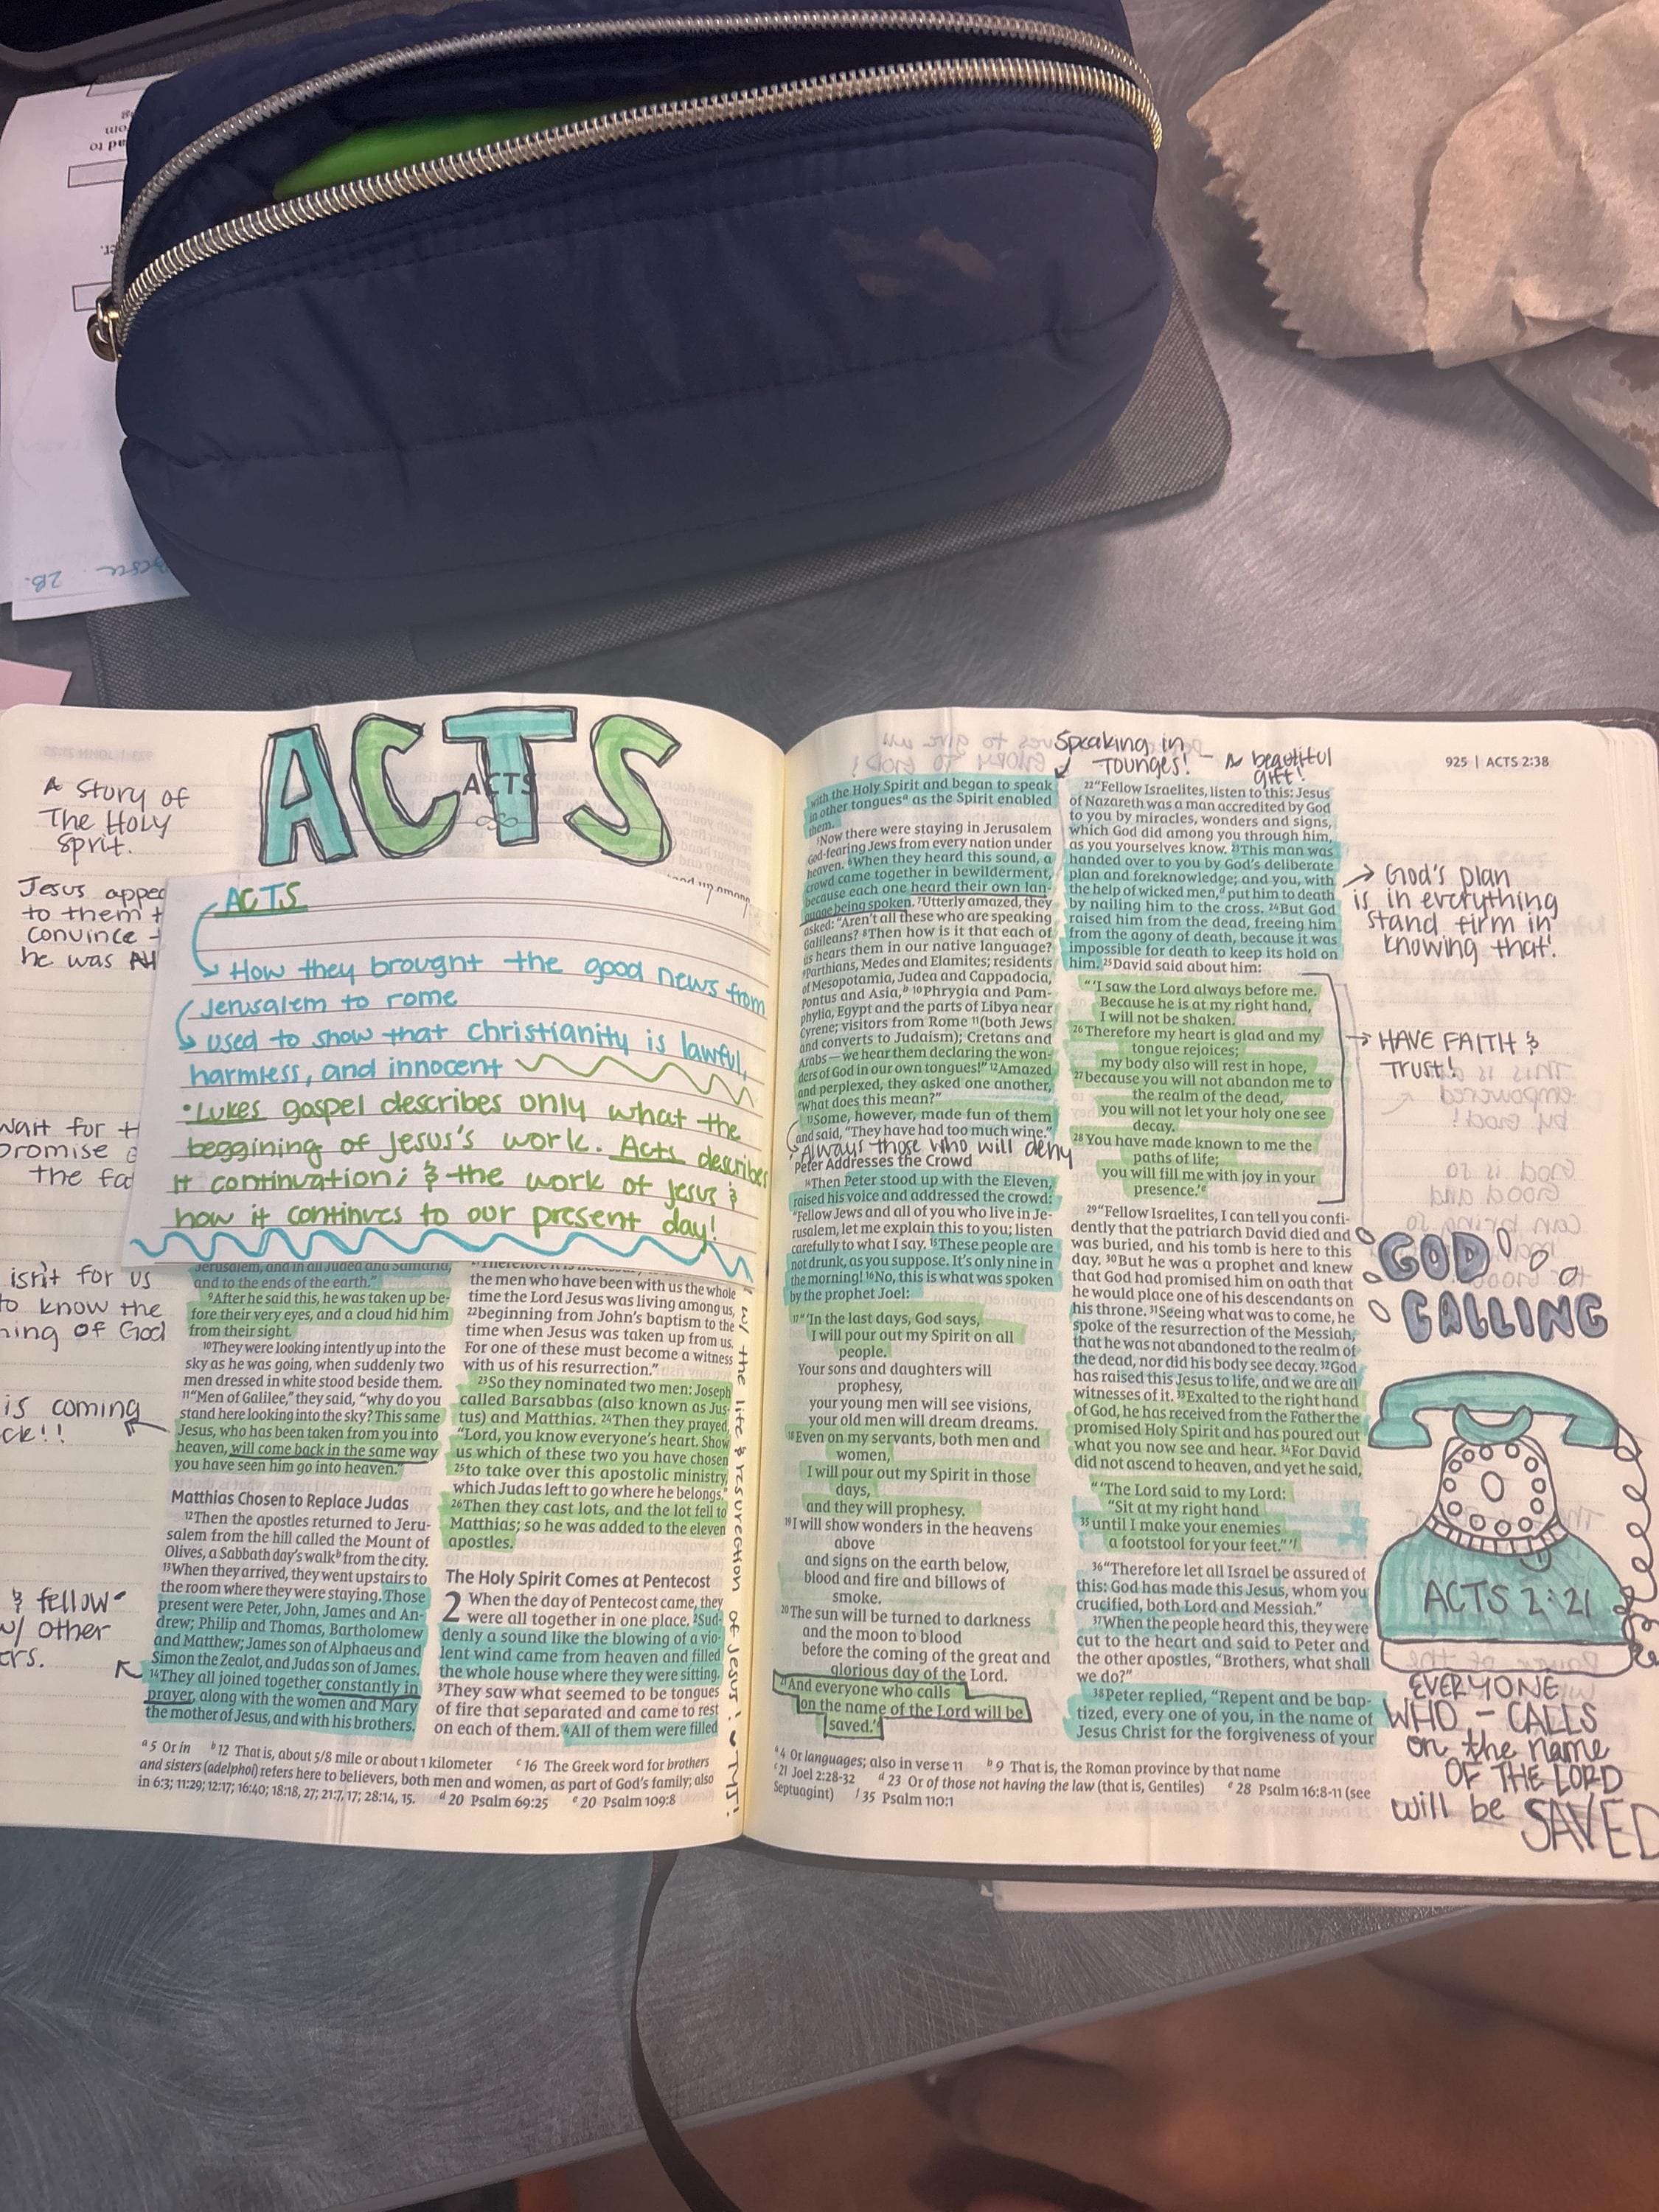 ACTS
ACTS
A Story of
The Holy
Sprit.
Jesus appea
to them
convince
he was
wait for
promise
the fa
isn't for us
to know the
ning of God
is coming
ck!!
& fellow
w/ other
ers.
ACTS
How they brought the good news from
Jerusalem to rome
used to show that christianity is lawful,
harmless, and innocent
•Lukes gospel describes only what the
beggining of Jesus's work. Acts describes
it continuation; & the work of Jesus &
how it continues to our present day!
Jerusalem, and in all Judea and Samaria,
and to the ends of the earth."
9After he said this, he was taken up be-
fore their very eyes, and a cloud hid him
from their sight.
10They were looking intently up into the
sky as he was going, when suddenly two
men dressed in white stood beside them.
11"Men of Galilee," they said, "why do you
stand here looking into the sky? This same
Jesus, who has been taken from you into
heaven, will come back in the same way
you have seen him go into heaven."
Matthias Chosen to Replace Judas
12Then the apostles returned to Jeru-
salem from the hill called the Mount of
Olives, a Sabbath day's walkb from the city.
13When they arrived, they went upstairs to
the room where they were staying. Those
present were Peter, John, James and An-
drew; Philip and Thomas, Bartholomew
and Matthew; James son of Alphaeus and
Simon the Zealot, and Judas son of James.
14They all joined together constantly in
prayer, along with the women and Mary
the mother of Jesus, and with his brothers.
21Therefore it is necessary
the men who have been with us the whole
time the Lord Jesus was living among us,
22beginning from John's baptism to the
time when Jesus was taken up from us.
For one of these must become a witness
with us of his resurrection."
23So they nominated two men: Joseph
called Barsabbas (also known as Jus-
tus) and Matthias. 24Then they prayed,
"Lord, you know everyone's heart. Show
us which of these two you have chosen
25to take over this apostolic ministry,
which Judas left to go where he belongs."
26Then they cast lots, and the lot fell to
Matthias; so he was added to the eleven
apostles.
The Holy Spirit Comes at Pentecost
2 When the day of Pentecost came, they
were all together in one place. 2Sud-
denly a sound like the blowing of a vio-
lent wind came from heaven and filled
the whole house where they were sitting.
3They saw what seemed to be tongues
of fire that separated and came to rest
on each of them. 4All of them were filled
w/ the life & resurection of Jesus! TYJ!
a 5 Or in b 12 That is, about 5/8 mile or about 1 kilometer c 16 The Greek word for brothers
and sisters (adelphoi) refers here to believers, both men and women, as part of God's family; also
in 6:3; 11:29; 12:17; 16:40; 18:18, 27; 21:7, 17; 28:14, 15. d 20 Psalm 69:25 e 20 Psalm 109:8
925 | ACTS 2:38
Speaking in
Tounges! - A beautiful
gift!
with the Holy Spirit and began to speak
in other tonguesa as the Spirit enabled
them.
5Now there were staying in Jerusalem
God-fearing Jews from every nation under
heaven. 6When they heard this sound, a
crowd came together in bewilderment,
because each one heard their own lan-
guage being spoken. 7Utterly amazed, they
asked: "Aren't all these who are speaking
Galileans? 8Then how is it that each of
us hears them in our native language?
9Parthians, Medes and Elamites; residents
of Mesopotamia, Judea and Cappadocia,
Pontus and Asia,b 10Phrygia and Pam-
phylia, Egypt and the parts of Libya near
Cyrene; visitors from Rome 11(both Jews
and converts to Judaism); Cretans and
Arabs—we hear them declaring the won-
ders of God in our own tongues!" 12Amazed
and perplexed, they asked one another,
"What does this mean?"
13Some, however, made fun of them
and said, "They have had too much wine."
Always those who will deny
Peter Addresses the Crowd
14Then Peter stood up with the Eleven,
raised his voice and addressed the crowd:
"Fellow Jews and all of you who live in Je-
rusalem, let me explain this to you; listen
carefully to what I say. 15These people are
not drunk, as you suppose. It's only nine in
the morning! 16No, this is what was spoken
by the prophet Joel:
17"'In the last days, God says,
I will pour out my Spirit on all
people.
Your sons and daughters will
prophesy,
your young men will see visions,
your old men will dream dreams.
18Even on my servants, both men and
women,
I will pour out my Spirit in those
days,
and they will prophesy.
19I will show wonders in the heavens
above
and signs on the earth below,
blood and fire and billows of
smoke.
20The sun will be turned to darkness
and the moon to blood
before the coming of the great and
glorious day of the Lord.
21And everyone who calls
on the name of the Lord will be
saved.'c
22"Fellow Israelites, listen to this: Jesus
of Nazareth was a man accredited by God
to you by miracles, wonders and signs,
which God did among you through him,
as you yourselves know. 23This man was
handed over to you by God's deliberate
plan and foreknowledge; and you, with
the help of wicked men,d put him to death
by nailing him to the cross. 24But God
raised him from the dead, freeing him
from the agony of death, because it was
impossible for death to keep its hold on
him. 25David said about him:
"'I saw the Lord always before me.
Because he is at my right hand,
I will not be shaken.
26Therefore my heart is glad and my
tongue rejoices;
my body also will rest in hope,
27because you will not abandon me to
the realm of the dead,
you will not let your holy one see
decay.
28You have made known to me the
paths of life;
you will fill me with joy in your
presence.'e
29"Fellow Israelites, I can tell you confi-
dently that the patriarch David died and
was buried, and his tomb is here to this
day. 30But he was a prophet and knew
that God had promised him on oath that
he would place one of his descendants on
his throne. 31Seeing what was to come, he
spoke of the resurrection of the Messiah,
that he was not abandoned to the realm of
the dead, nor did his body see decay. 32God
has raised this Jesus to life, and we are all
witnesses of it. 33Exalted to the right hand
of God, he has received from the Father the
promised Holy Spirit and has poured out
what you now see and hear. 34For David
did not ascend to heaven, and yet he said,
"'The Lord said to my Lord:
"Sit at my right hand
35until I make your enemies
a footstool for your feet."'f
36"Therefore let all Israel be assured of
this: God has made this Jesus, whom you
crucified, both Lord and Messiah."
37When the people heard this, they were
cut to the heart and said to Peter and
the other apostles, "Brothers, what shall
we do?"
38Peter replied, "Repent and be bap-
tized, every one of you, in the name of
Jesus Christ for the forgiveness of your
a 4 Or languages; also in verse 11 b 9 That is, the Roman province by that name
c 21 Joel 2:28-32 d 23 Or of those not having the law (that is, Gentiles) e 28 Psalm 16:8-11 (see
Septuagint) f 35 Psalm 110:1
God's plan
is in everything
stand firm in
knowing that!
HAVE FAITH &
TRUST!
GOD
CALLING
ACTS 2:21
EVERYONE
WHO - CALLS
on the name
OF THE LORD
will be SAVED